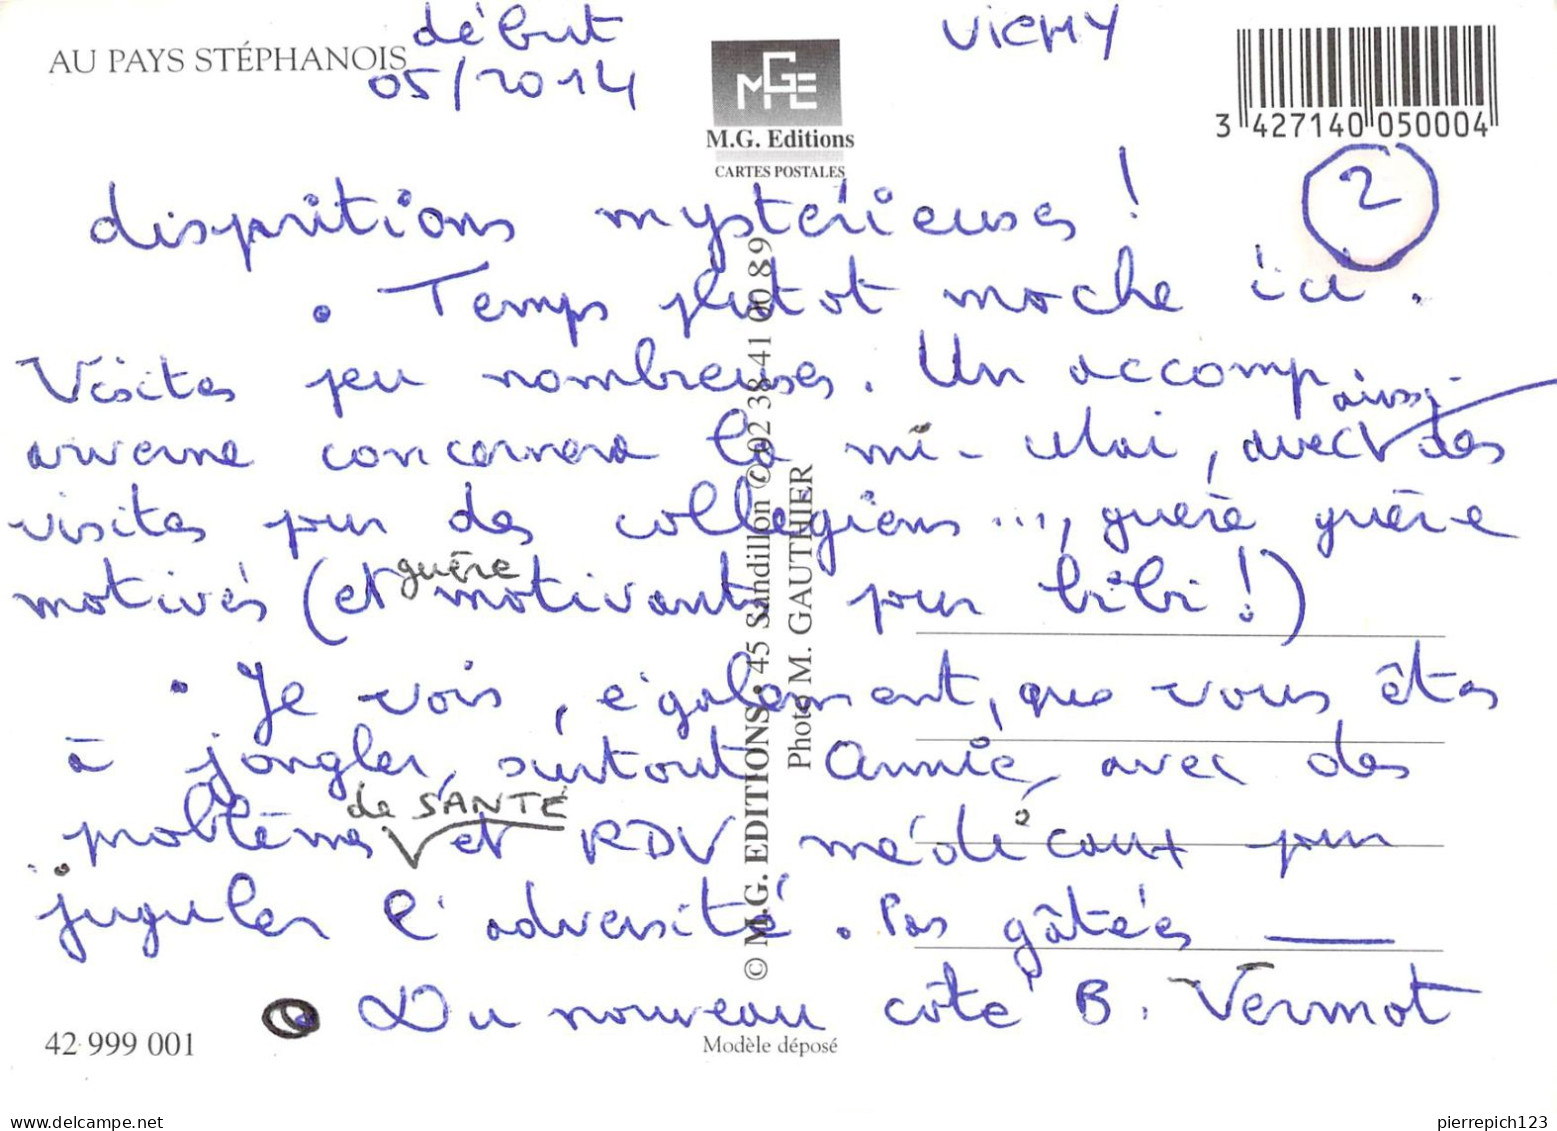 AU PAYS STÉPHANOIS
début
05/2014
VICHY
MGE
M.G. Editions
CARTES POSTALES
3 427140 050004
2
dispritions mystérieuses !
• Temps plutot moche ici .
Visites peu nombreuses. Un accomp
arverne concernera la mi-Mai, avec aussi des
visites pour des collégiens ..., guère guère
motivés (et guère motivants pour bibi !)
• Je vois, également, que vous êtes
à jongler, surtout Annie, avec des
problèmes de SANTÉ et RDV médicaux pour
juguler l'adversité. Pas gâtées —
Du nouveau côté B. Vermot
© M.G. EDITIONS • 45 Sandillon © 02 38 41 00 89
Photo M. GAUTHIER
42 999 001
Modèle déposé
pierrepich123